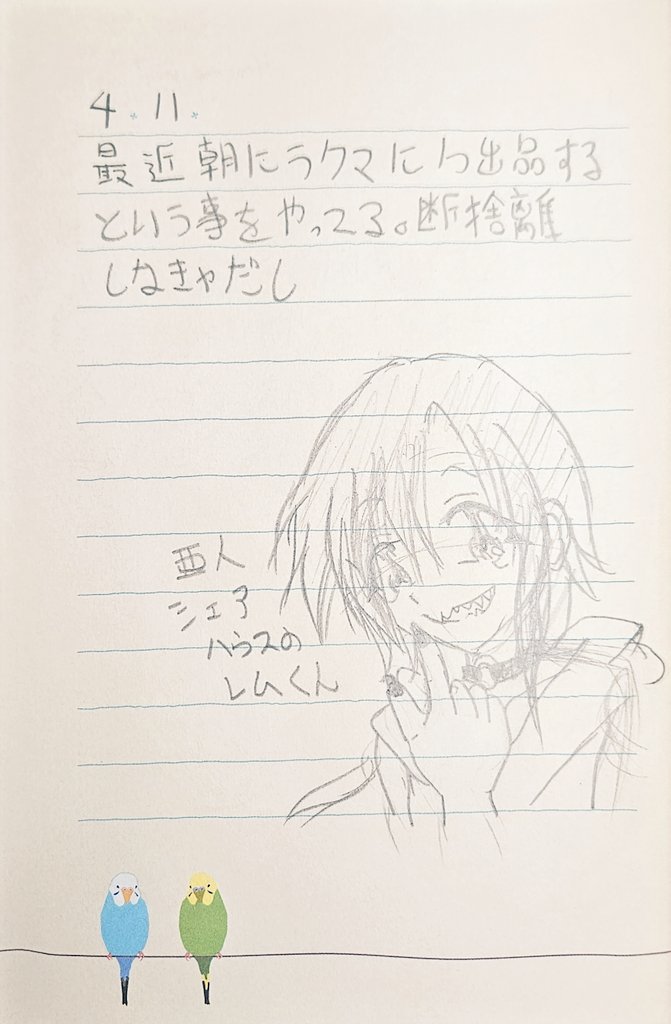 4.11.
最近朝にラクマに1つ出品する
という事をやってる。断捨離
しなきゃだし
亜人
シェア
ハウスの
レムくん